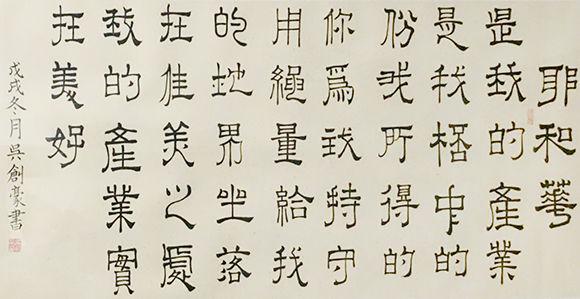 耶和華
是我的產業
是我桮中的
份我所得的
你為我持守
用繩量給我
的地界坐落
在佳美之處
我的產業實
在美好
戊戌冬月吳創豪書